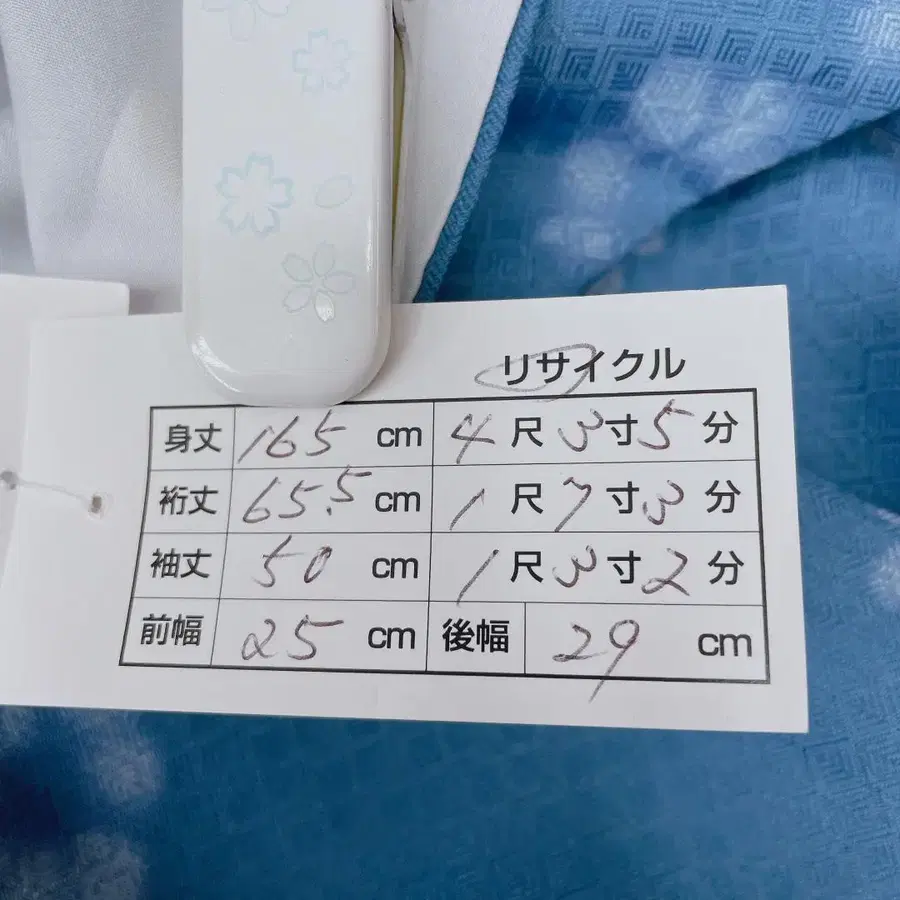 リサイクル
身丈 165 cm 4尺3寸5分
裄丈 65.5 cm 1尺7寸3分
袖丈 50 cm 1尺3寸2分
前幅 25 cm 後幅 29 cm